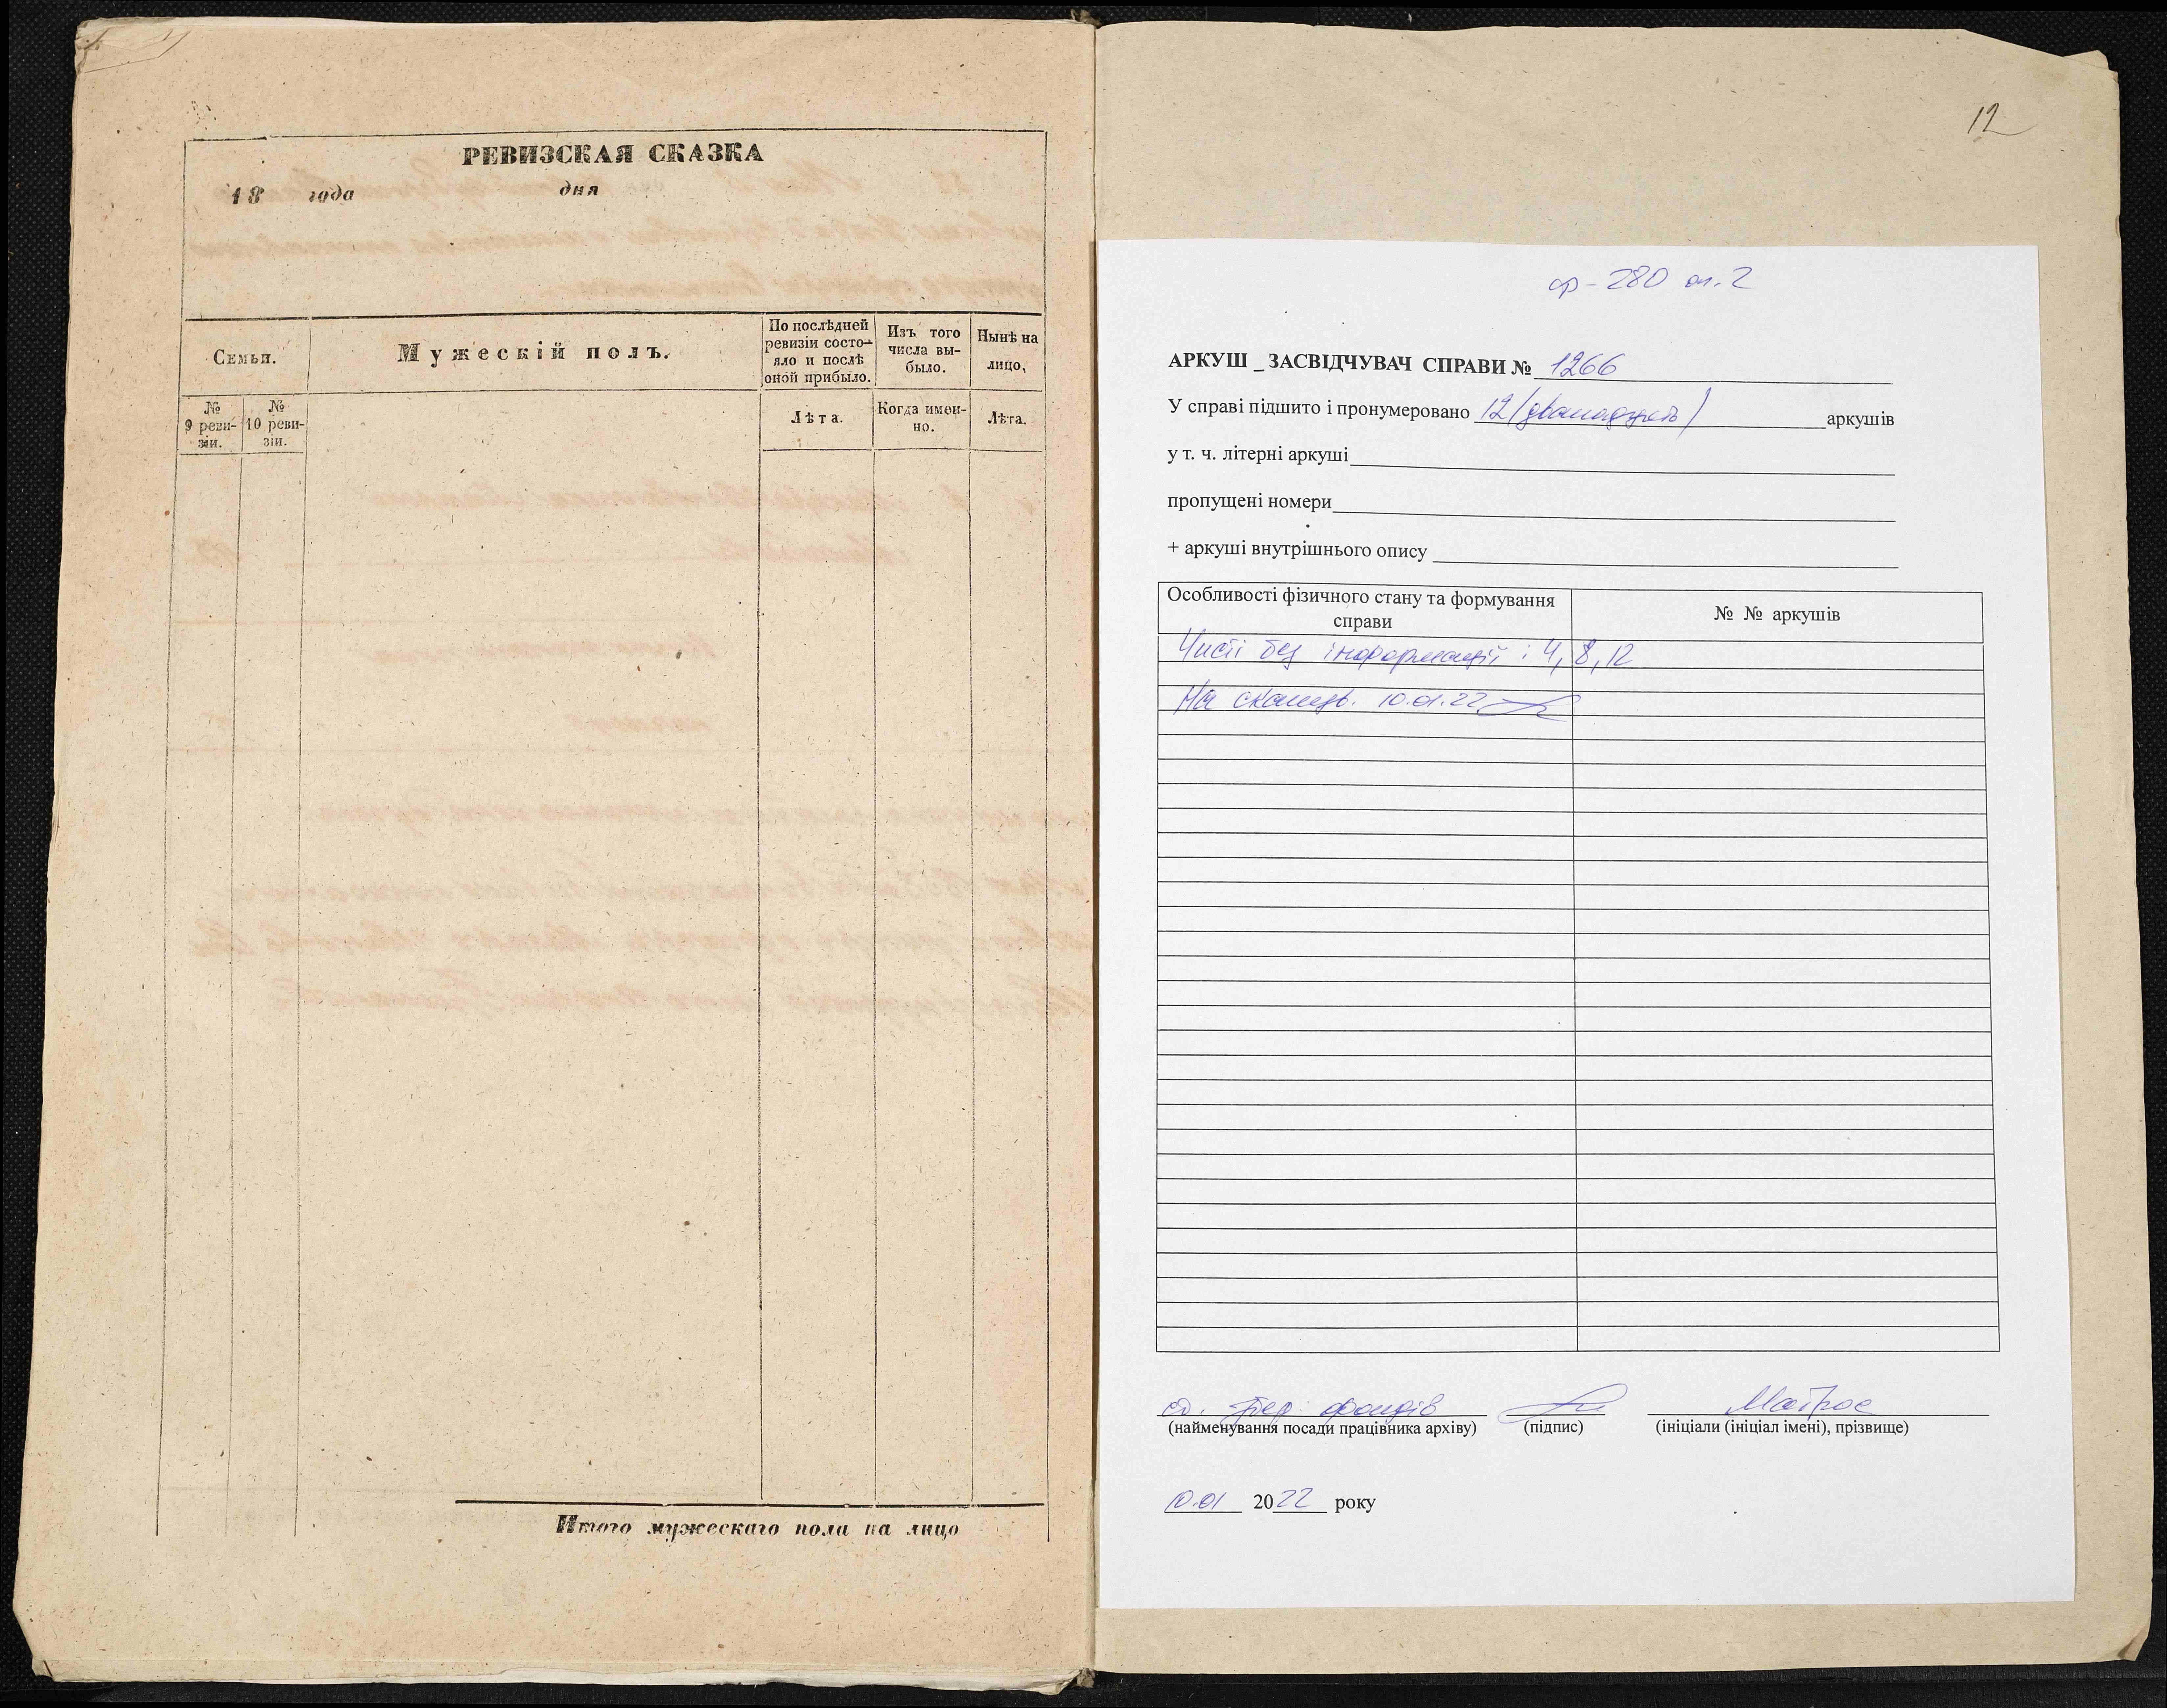 РЕВИЗСКАЯ СКАЗКА
18 года дня
Семьи.
Мужескій полъ.
По послѣдней
ревизіи состо-
яло и послѣ
оной прибыло.
Изъ того
числа вы-
было.
Нынѣ на
лицо,
№
9 реви-
зіи.
№
10 реви-
зіи.
Лѣта.
Когда имен-
но.
Лѣта.
Итого мужескаго пола на лицо
12
ф-280 оп.2
АРКУШ _ ЗАСВІДЧУВАЧ СПРАВИ № 1266
У справі підшито і пронумеровано 12 (дванадцять) аркушів
у т. ч. літерні аркуші
пропущені номери
+ аркуші внутрішнього опису
Особливості фізичного стану та формування
справи
№ № аркушів
Чисті без інформації: 4, 8, 12
На сканув. 10.01.22
фондів
Матрос
(найменування посади працівника архіву) (підпис) (ініціали (ініціал імені), прізвище)
10.01 2022 року